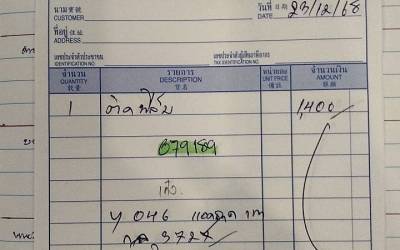 นาม
CUSTOMER
วันที่
DATE 23/12/68
ที่อยู่
ADDRESS
เลขประจำตัวประชาชน
IDENTIFICATION NO.
เลขประจำตัวผู้เสียภาษีอากร
TAX IDENTIFICATION NO.
จำนวน รายการ หน่วยละ จำนวนเงิน
QUANTITY DESCRIPTION UNIT PRICE AMOUNT
1 ติดฟิล์ม 1,400
079189
เก๋ง